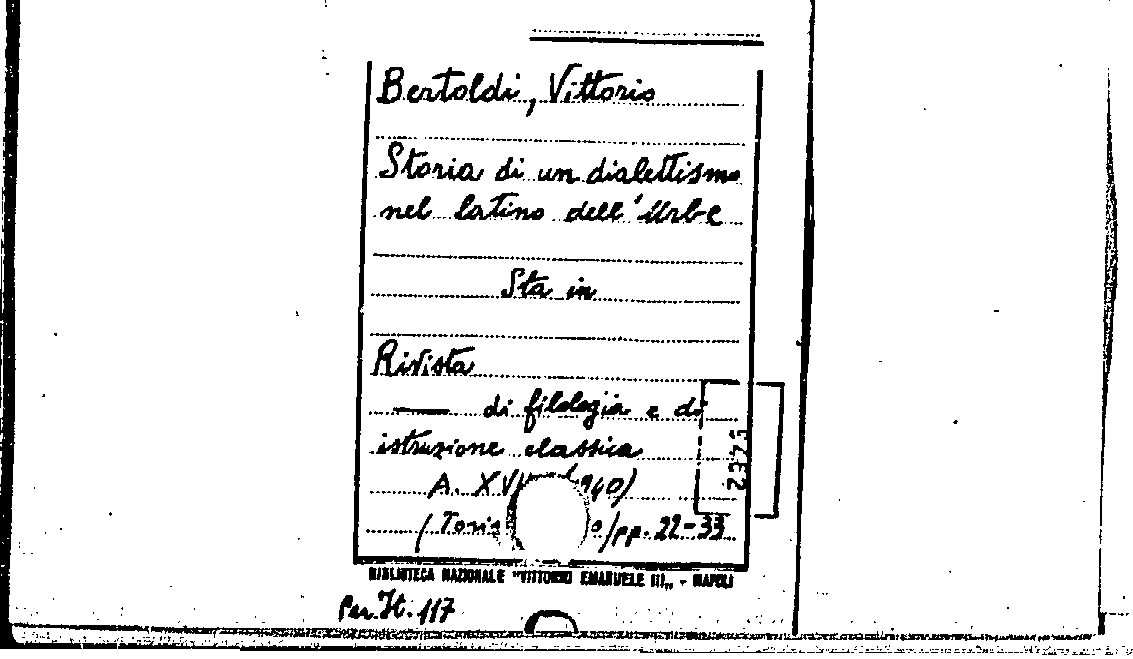 Bertoldi, Vittorio
Storia di un dialettismo
nel latino dell'Urbe
Sta in
Rivista
—— di filologia e di
istruzione classica
A. XV 1940)
(Torin o) pp. 22-33
BIBLIOTECA NAZIONALE "VITTORIO EMANUELE III„ - NAPOLI
Per. It. 117